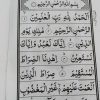 بِسْمِ اللَّهِ الرَّحْمَٰنِ الرَّحِيمِ
الْحَمْدُ لِلَّهِ رَبِّ الْعَالَمِينَ
الرَّحْمَٰنِ الرَّحِيمِ مَالِكِ يَوْمِ
الدِّينِ إِيَّاكَ نَعْبُدُ وَإِيَّاكَ
نَسْتَعِينُ اهْدِنَا الصِّرَاطَ
الْمُسْتَقِيمَ صِرَاطَ الَّذِينَ
أَنْعَمْتَ عَلَيْهِمْ غَيْرِ الْمَغْضُوبِ